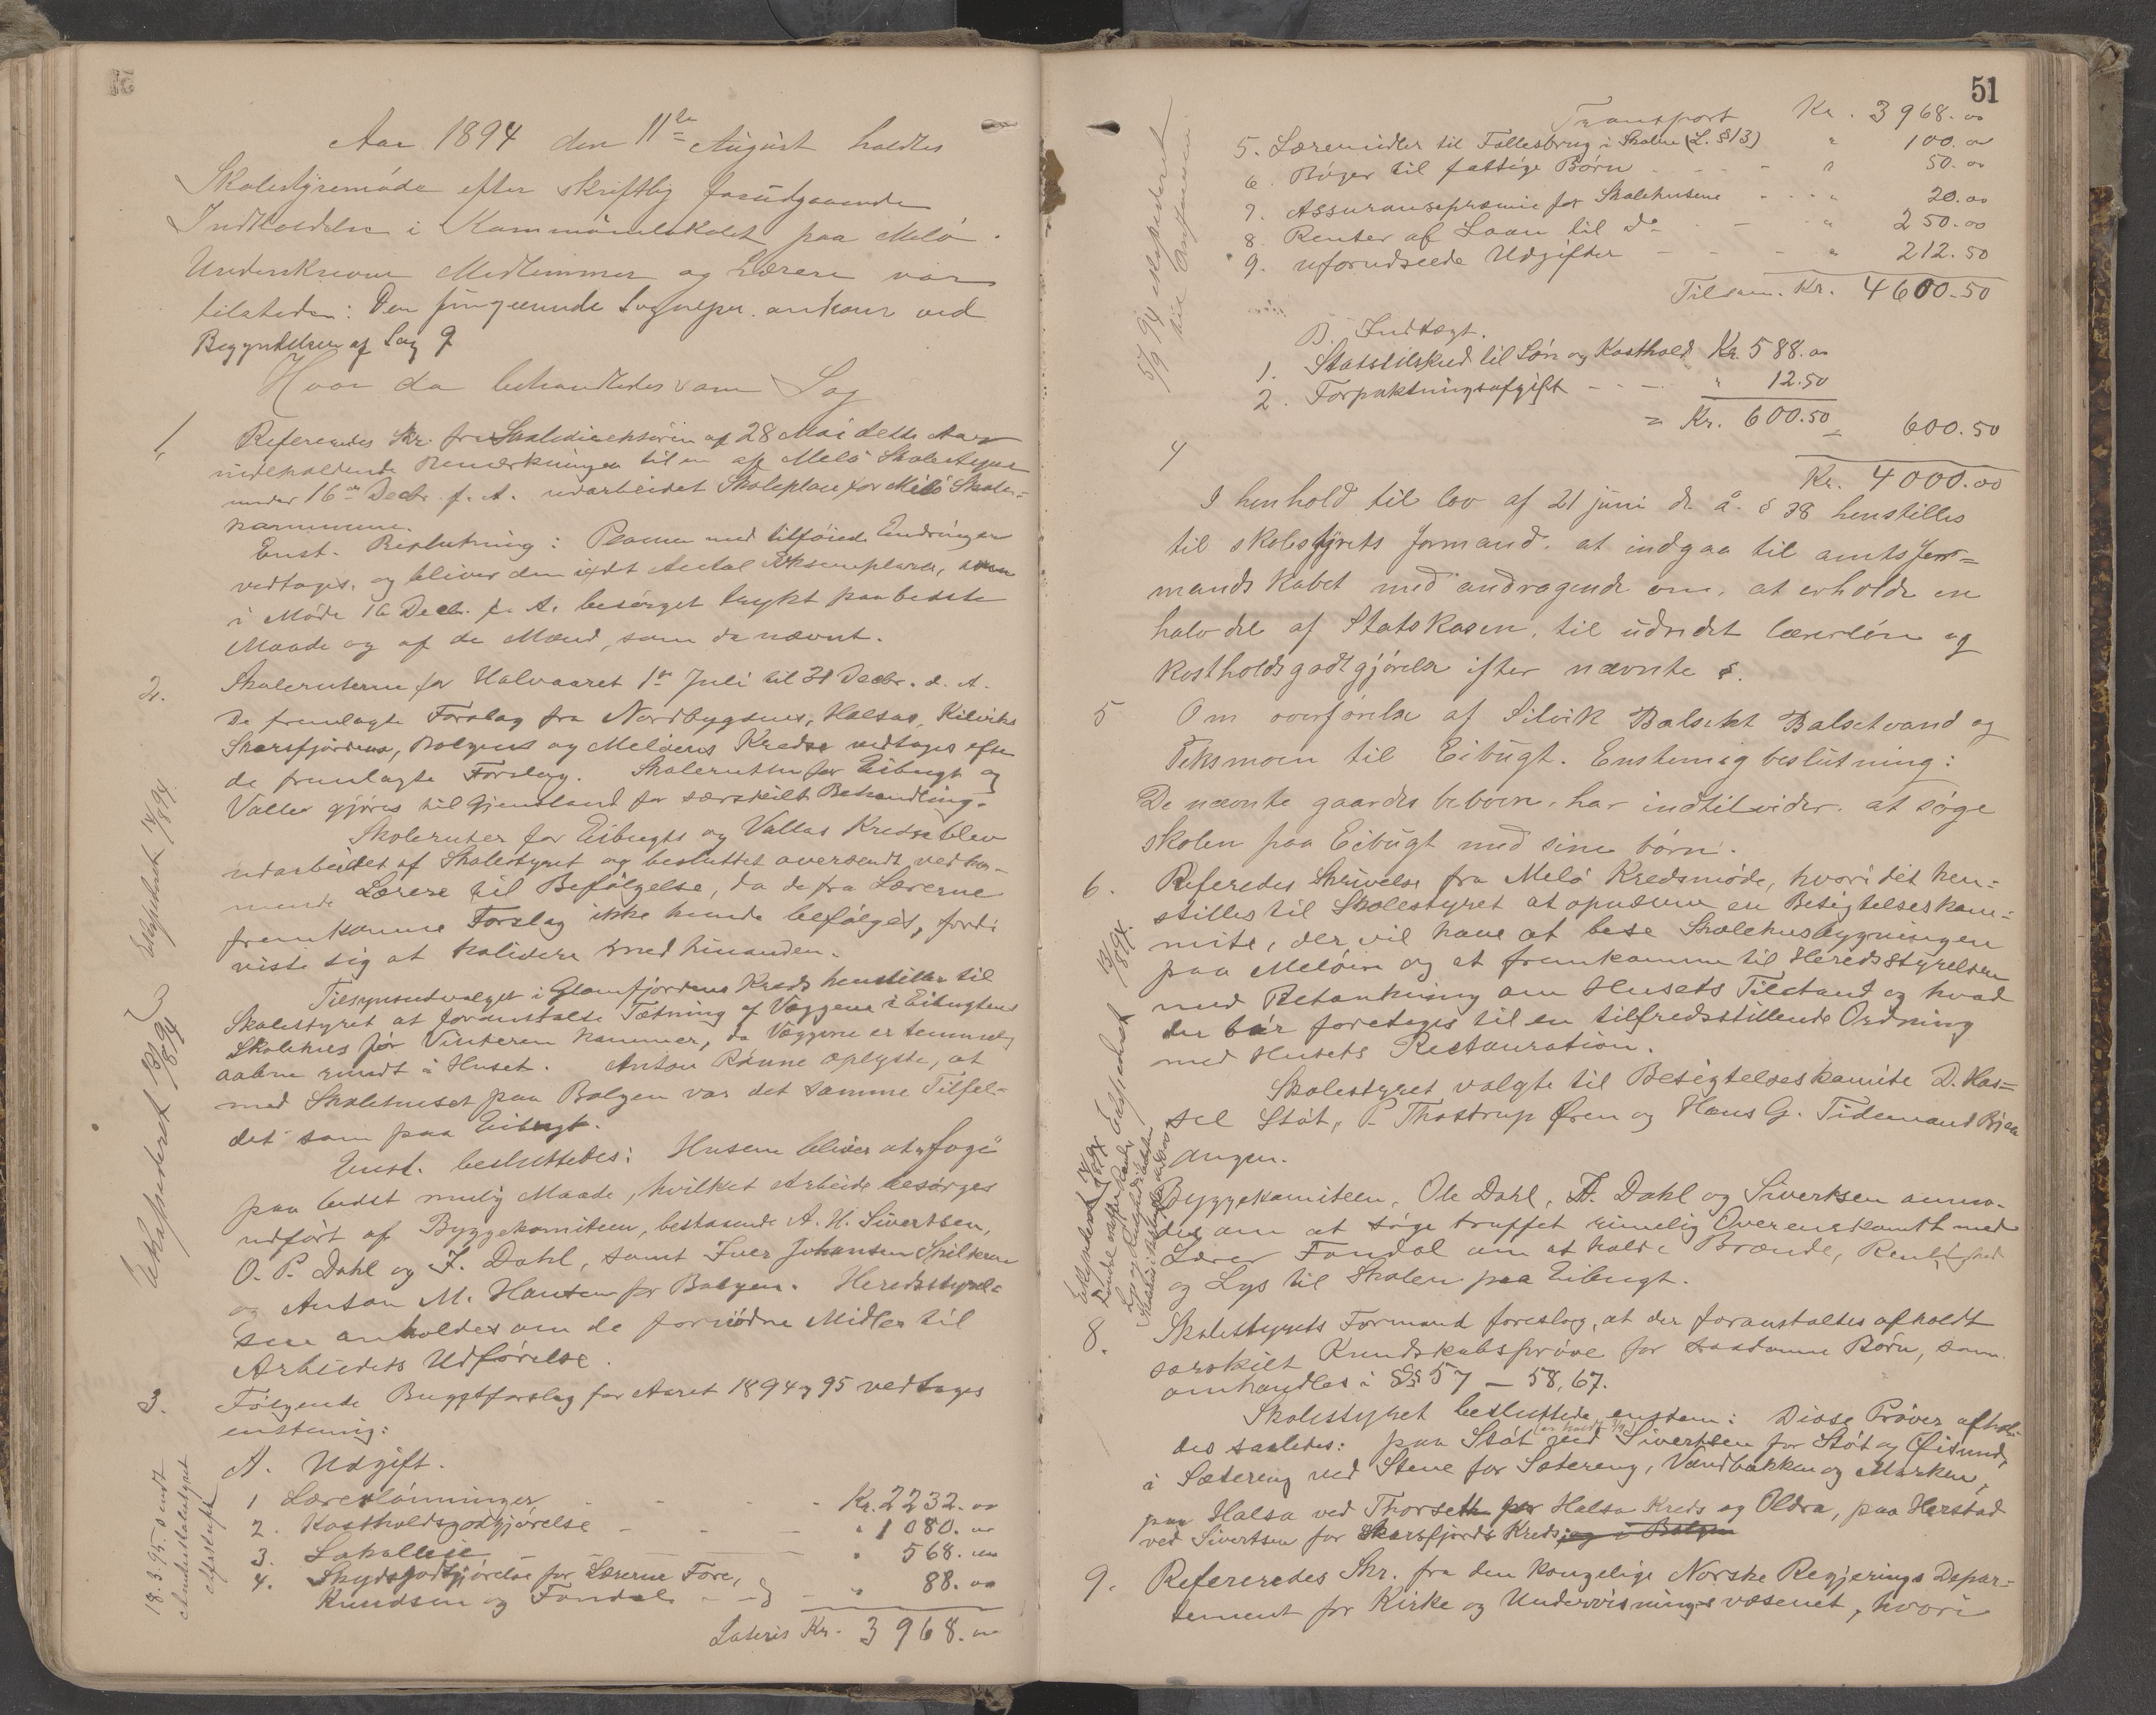 Aar 1894 den 11te August holdtes
Skolestyremøde efter skriftlig forudgaaende
Indkaldelse i Kommunelokalet paa Melø.
Underskrevne Medlemmer og Lærere var
tilstede: Den fungerende Sognepr. ankom ved
Begyndelsen af Sag 9
Hvor da behandledes som Sag
1. Refereredes Skr. fra Skoledirektøren af 28 Mai dette Aar
indeholdende Bemærkninger til en af Melø Skolestyre
under 16de Decbr. f. A. udarbeidet Skoleplan for Melø Skole-
kommune.
Enst. Beslutning: Planen med tilføiede Endringer
vedtages, og bliver den i det Antal Exsemplarer, som
i Møde 16 Decb. f. A. besørget trykt paa bedste
Maade og af de Mænd, som da nævnt.
2. Skoleruterne for Halvaaret 1ste Juli til 31 Decbr. d. A.
De fremlagte Forslag fra Nordbygdens, Halsas, Kilviks
Skarsfjordens, Bolgens og Meløens Kredse vedtages efter
de fremlagte Forslag. Skoleruten for Eibugt og
Vallas gjøres til Gjenstand for særskilt Behandling.
Skoleruter for Eibugts og Vallas Kredse blev
udarbeidet af Skolestyret og besluttet oversendt vedkom-
mende Lærere til Befølgelse, da de fra Lærerne
fremkomne Forslag ikke kunde befølges, fordi
viste sig at kolidere med hinanden.
Tilsynsudvalget i Glomfjordens Kreds henstiller til
Skolestyret at foranstalte Tætning af Væggene i Eibugtens
Skolehus før Vinteren kommer, da Væggene er temmelig
aabne rundt i Huset. Anton Rønne oplyste, at
med Skolehuset paa Bolgen var det samme Tilfel-
det som paa Eibugt.
Enst. besluttedes: Husene bliver at "foge"
paa bedst mulig Maade, hvilket Arbeide besørges
udført af Byggekomiteen, bestaaende A. H. Sivertsen,
O. P. Dahl og F. Dahl, samt Iver Johansen Spilderen
og Anton M. Hansen for Bolgen. Heredsstyrel-
sen anholdes om de fornødne Midler til
Arbeidets Udførelse.
3. Følgende Bugetforslag for Aaret 1894 og 95 vedtages
enstemig:
A. Udgift.
1 Lærerlønninger - - - Kr. 2232.00
2. Kostholdsgodtgjørelse - - - " 1080.00
3. Lokalleie - - - " 568.00
4. Skydsgodtgjørelse for Lærerne Fore,
Knudsen og Fondal - - " 88.00
Lateris Kr. 3968.00
Ekspederet 13/8 94
Ekspederet 14/8 94.
18.3.95. sendt
Amtsskolestyret
afskrift
51
Transport Kr. 3968.00
5. Læremidler til Fællesbrug i Skolen (L. § 13) " 100.00
6. Bøger til fattige Børn - - - " 50.00
7. Assurancepræmie for Skolehusene - - - " 20.00
8. Renter af Laan til do - - " 250.00
9. uforudseede Udgifter - - - " 212.50
Tilsam. Kr. 4600.50
B. Indtægt.
1. Statstilskud til Løn og Kosthold Kr. 588.00
2. Forpaktningsafgift - - - " 12.50
= Kr. 600.50 = 600.50
Kr. 4000.00
5/9 94 ekspederet
til Amtmanden
4
I henhold til lov af 21 juni d. å. § 38 henstilles
til skolestyrets formand. at indgaa til amtsfor-
mandskabet med andragende om, at erholde en
halvdel af Statskasen, til udredet lærerløn og
kostholdsgodtgjørelse efter nævnte §.
5 Om overførelse af Silvik Balseth Balsetvand og
Teksmoen til Eibugt. Enstemig beslutning:
De nævnte gaardes beboere, har indtilvider. at søge
skolen paa Eibugt med sine børn.
6. Referedes Skrivelse fra Melø Kredsmøde, hvori det hen-
stilles til Skolestyret at opnævne en Besigtelseskom-
mite, der vil have at bese Skolehusbygningen
paa Meløen og at fremkomme til Heredsstyrelsen
med Betænkning om Husets Tilstand og hvad
der bør foretages til en tilfredsstillende Ordning
med Husets Restauration.
Skolestyret valgte til Besigtelseskomite D. Has-
sel Støt, P. Thostrup Øren og Hans G. Tidemand Bjær
angen.
Ekspederet 13/8 94.
Byggekomiteen, Ole Dahl, Fr. Dahl og Sivertsen anmo-
des om at søge truffet rimelig Overenskomst med
Lærer Fondal om at holde Brænde, Renhed
og Lys til Skolen paa Eibugt.
8. Skolestyrets Formand foreslog, at der foranstaltes afholdt
særskilt Kundskabsprøve for saadanne Børn, som
omhandles i §§ 57 – 58, 67.
Skolestyret besluttede enstem: Disse Prøver afhol-
des saaledes: paa Støt ved Sivertsen for Støt og Øisund,
i Sætereng ved Stene for Sætereng, Vandbakken og Marken,
paa Halsa ved Thorseth for Halsa Kreds og Oldra, paa Herstad
ved Sivertsen for Skarsfjords Kreds og i Bolgen
9. Refereredes Skr. fra den kongelige Norske Regjerings Depar-
tement for Kirke og Undervisningsvæsenet, hvori